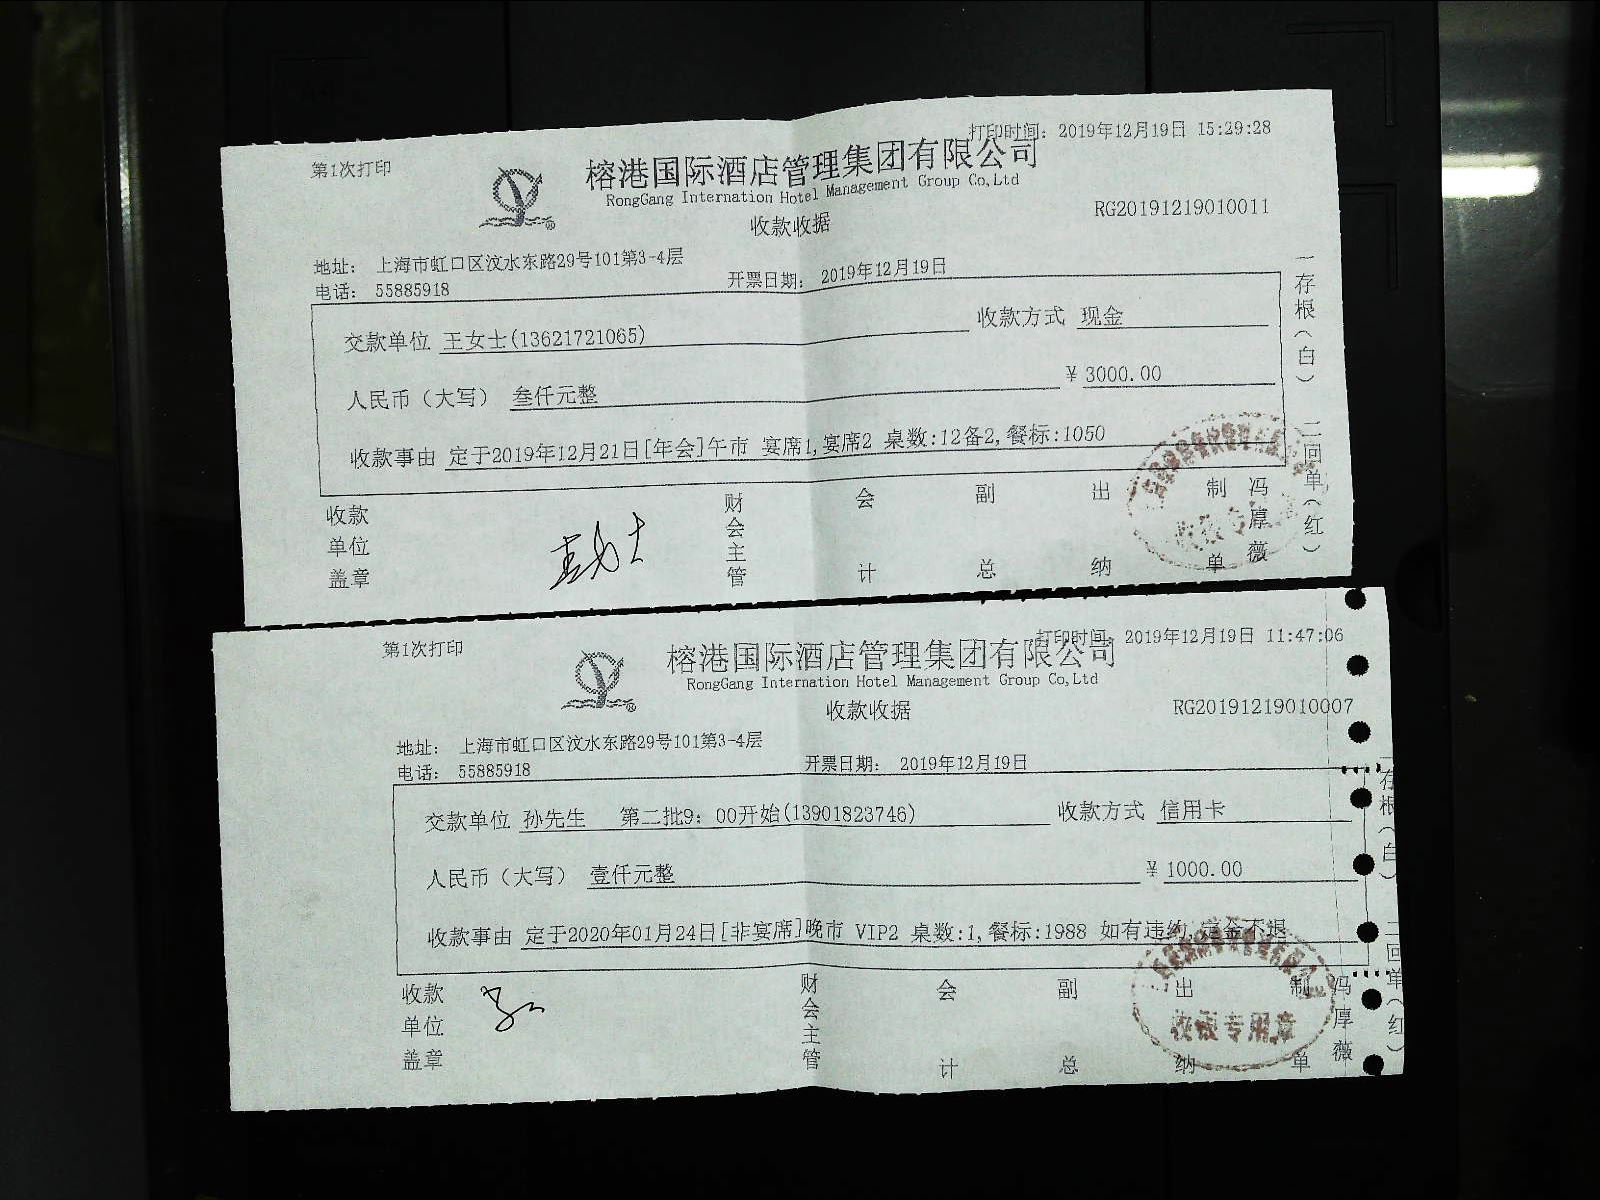 第1次打印
打印时间：2019年12月19日 15:29:28
榕港国际酒店管理集团有限公司
RongGang Internation Hotel Management Group Co,Ltd
收款收据
RG20191219010011
地址： 上海市虹口区汶水东路29号101第3-4层
电话： 55885918
开票日期： 2019年12月19日
交款单位 王女士(13621721065)
收款方式 现金
人民币（大写） 叁仟元整
¥ 3000.00
收款事由 定于2019年12月21日[年会]午市 宴席1,宴席2 桌数:12备2,餐标:1050
收款单位盖章
财会主管
会计
副总
出纳
制单
冯厚薇
一存根（白） 二回单（红）
第1次打印
打印时间：2019年12月19日 11:47:06
榕港国际酒店管理集团有限公司
RongGang Internation Hotel Management Group Co,Ltd
收款收据
RG20191219010007
地址： 上海市虹口区汶水东路29号101第3-4层
电话： 55885918
开票日期： 2019年12月19日
交款单位 孙先生 第二批9：00开始(13901823746)
收款方式 信用卡
人民币（大写） 壹仟元整
¥ 1000.00
收款事由 定于2020年01月24日[非宴席]晚市 VIP2 桌数:1,餐标:1988 如有违约,定金不退
收款单位盖章
财会主管
会计
副总
出纳
制单
冯厚薇
一存根（白） 二回单（红）
专用章